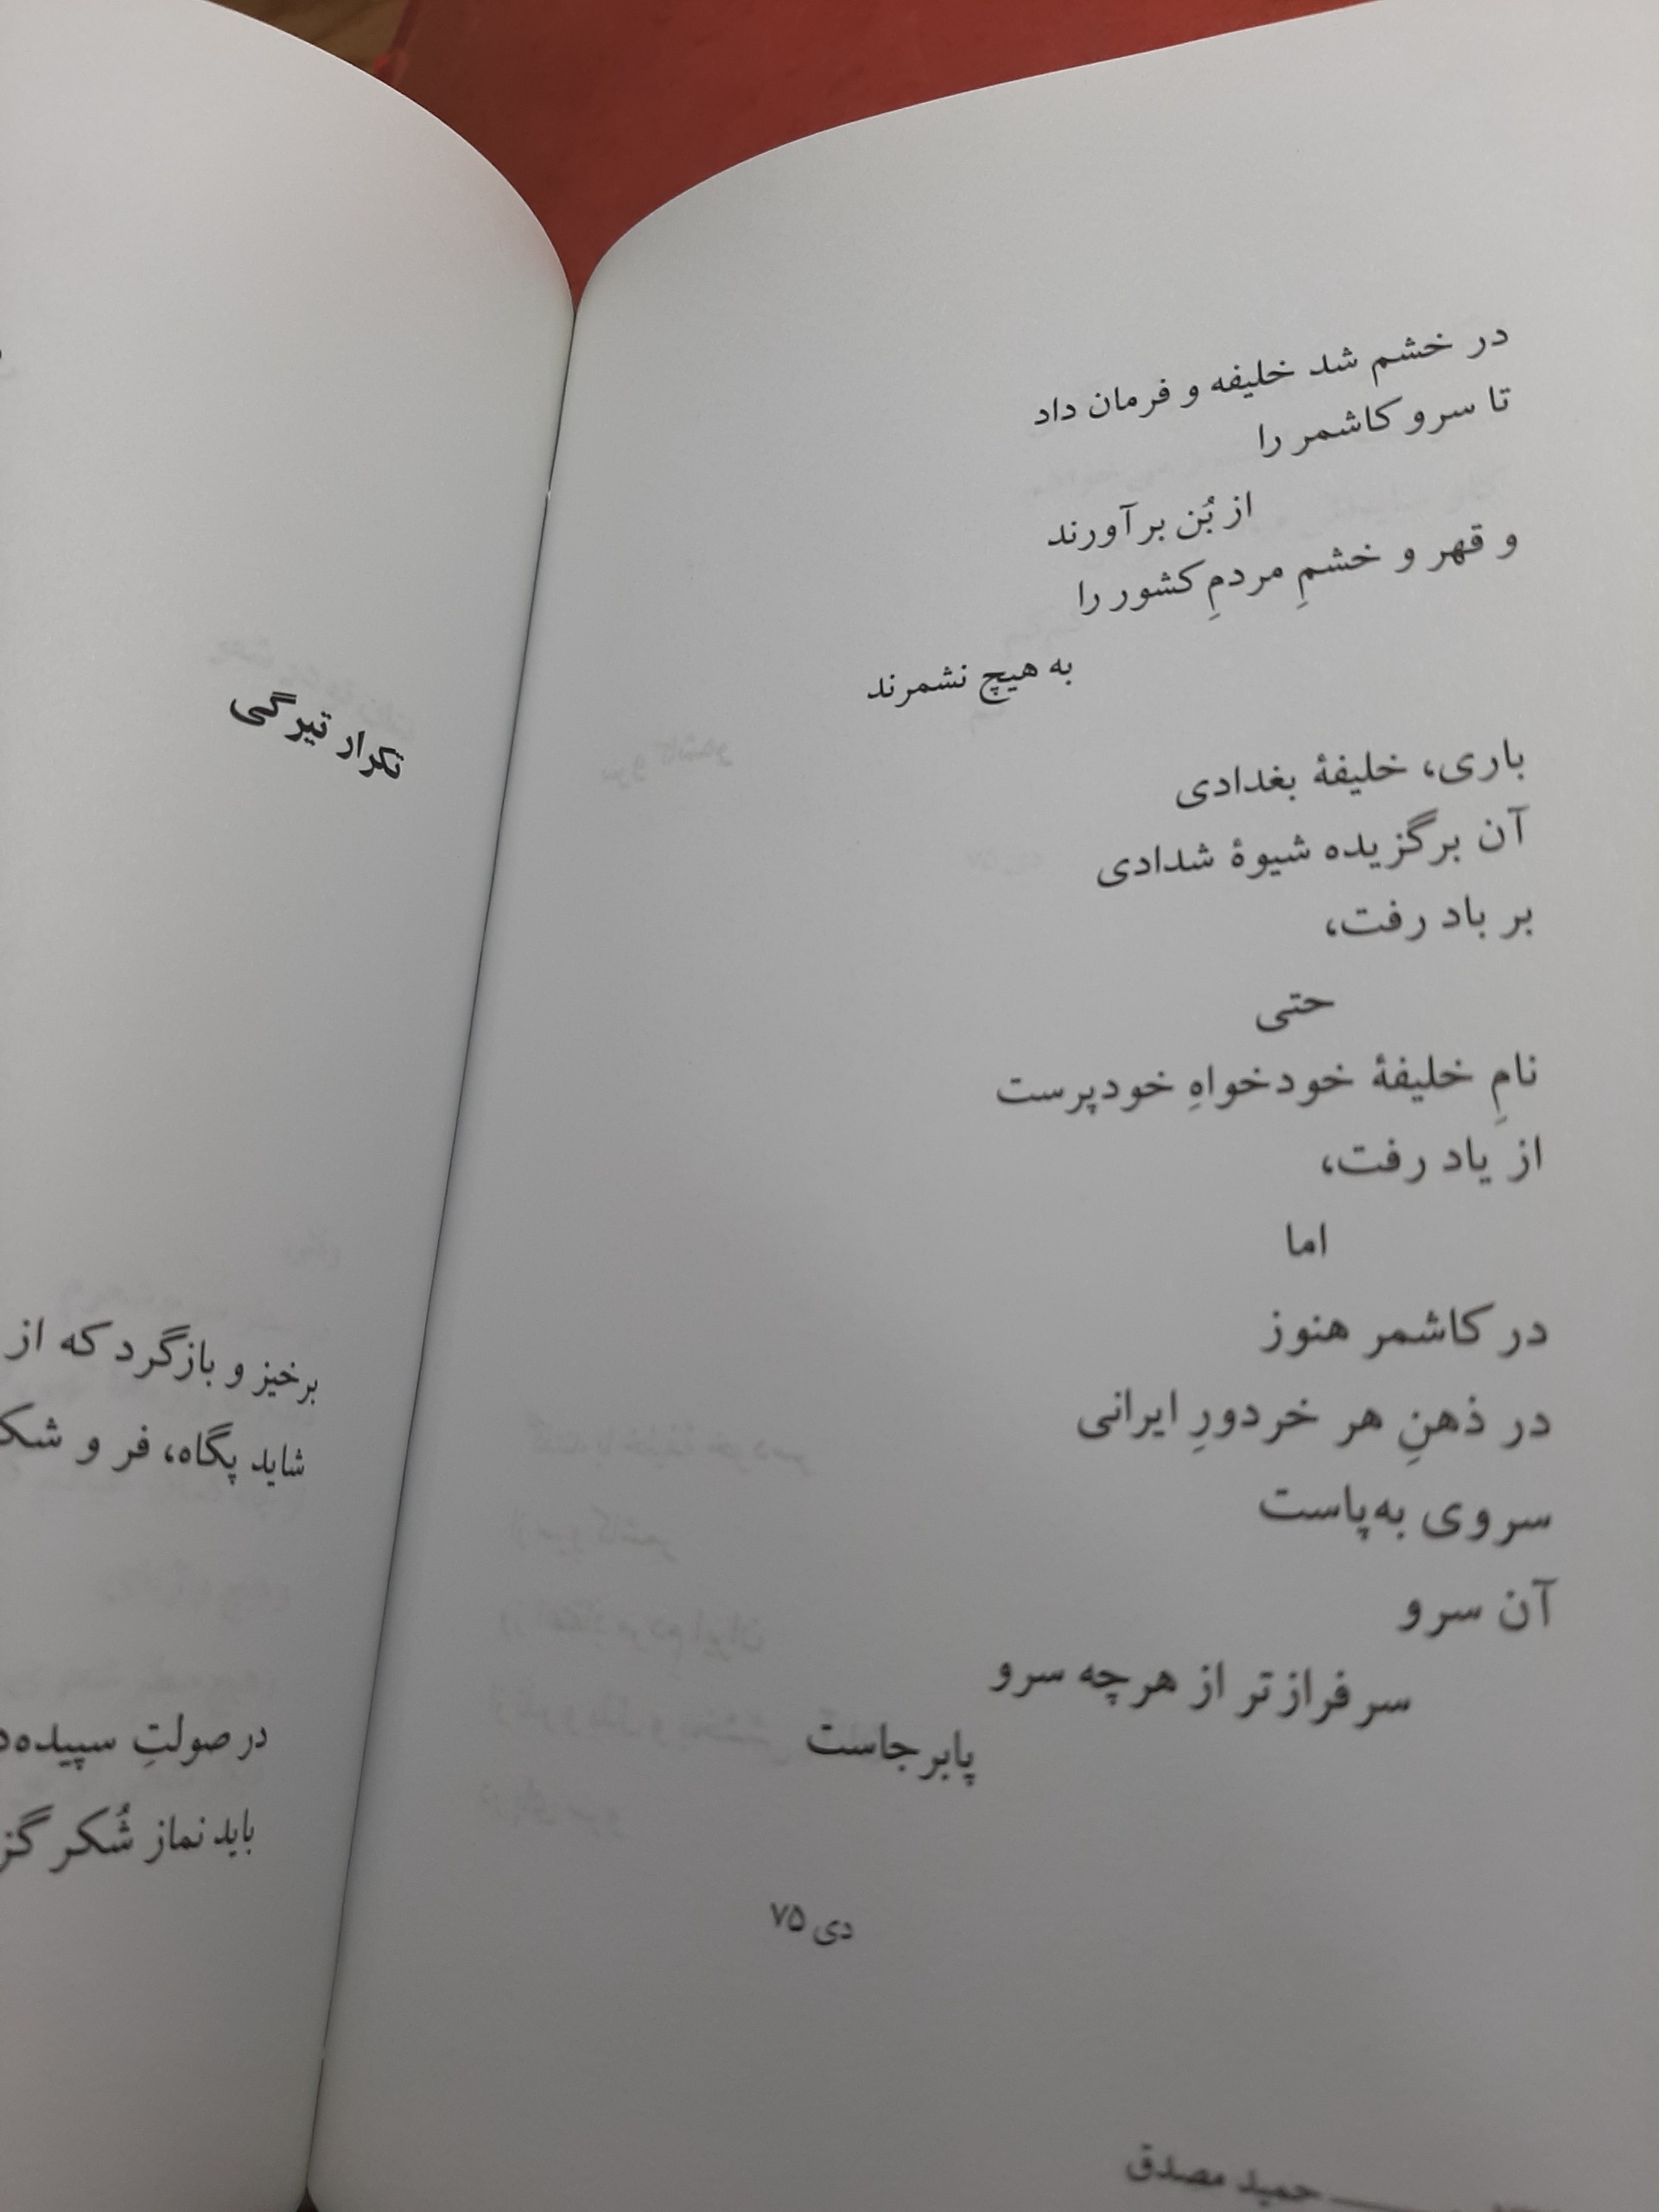 در خشم شد خلیفه و فرمان داد
تا سرو کاشمر را
از بُن برآورند
و قهر و خشمِ مردمِ کشور را
به هیچ نشمرند
باری، خلیفهٔ بغدادی
آن برگزیده شیوهٔ شدادی
بر باد رفت،
حتی
نامِ خلیفهٔ خودخواهِ خودپرست
از یاد رفت،
اما
در کاشمر هنوز
در ذهنِ هر خردورِ ایرانی
سروی به‌پاست
آن سرو
سرفرازتر از هرچه سرو
پابرجاست
دی ۷۵
حمید مصدق
تکرار تیرگی
برخیز و بازگرد که از
شاید پگاه، فر و
در صولتِ
باید نماز شُکر